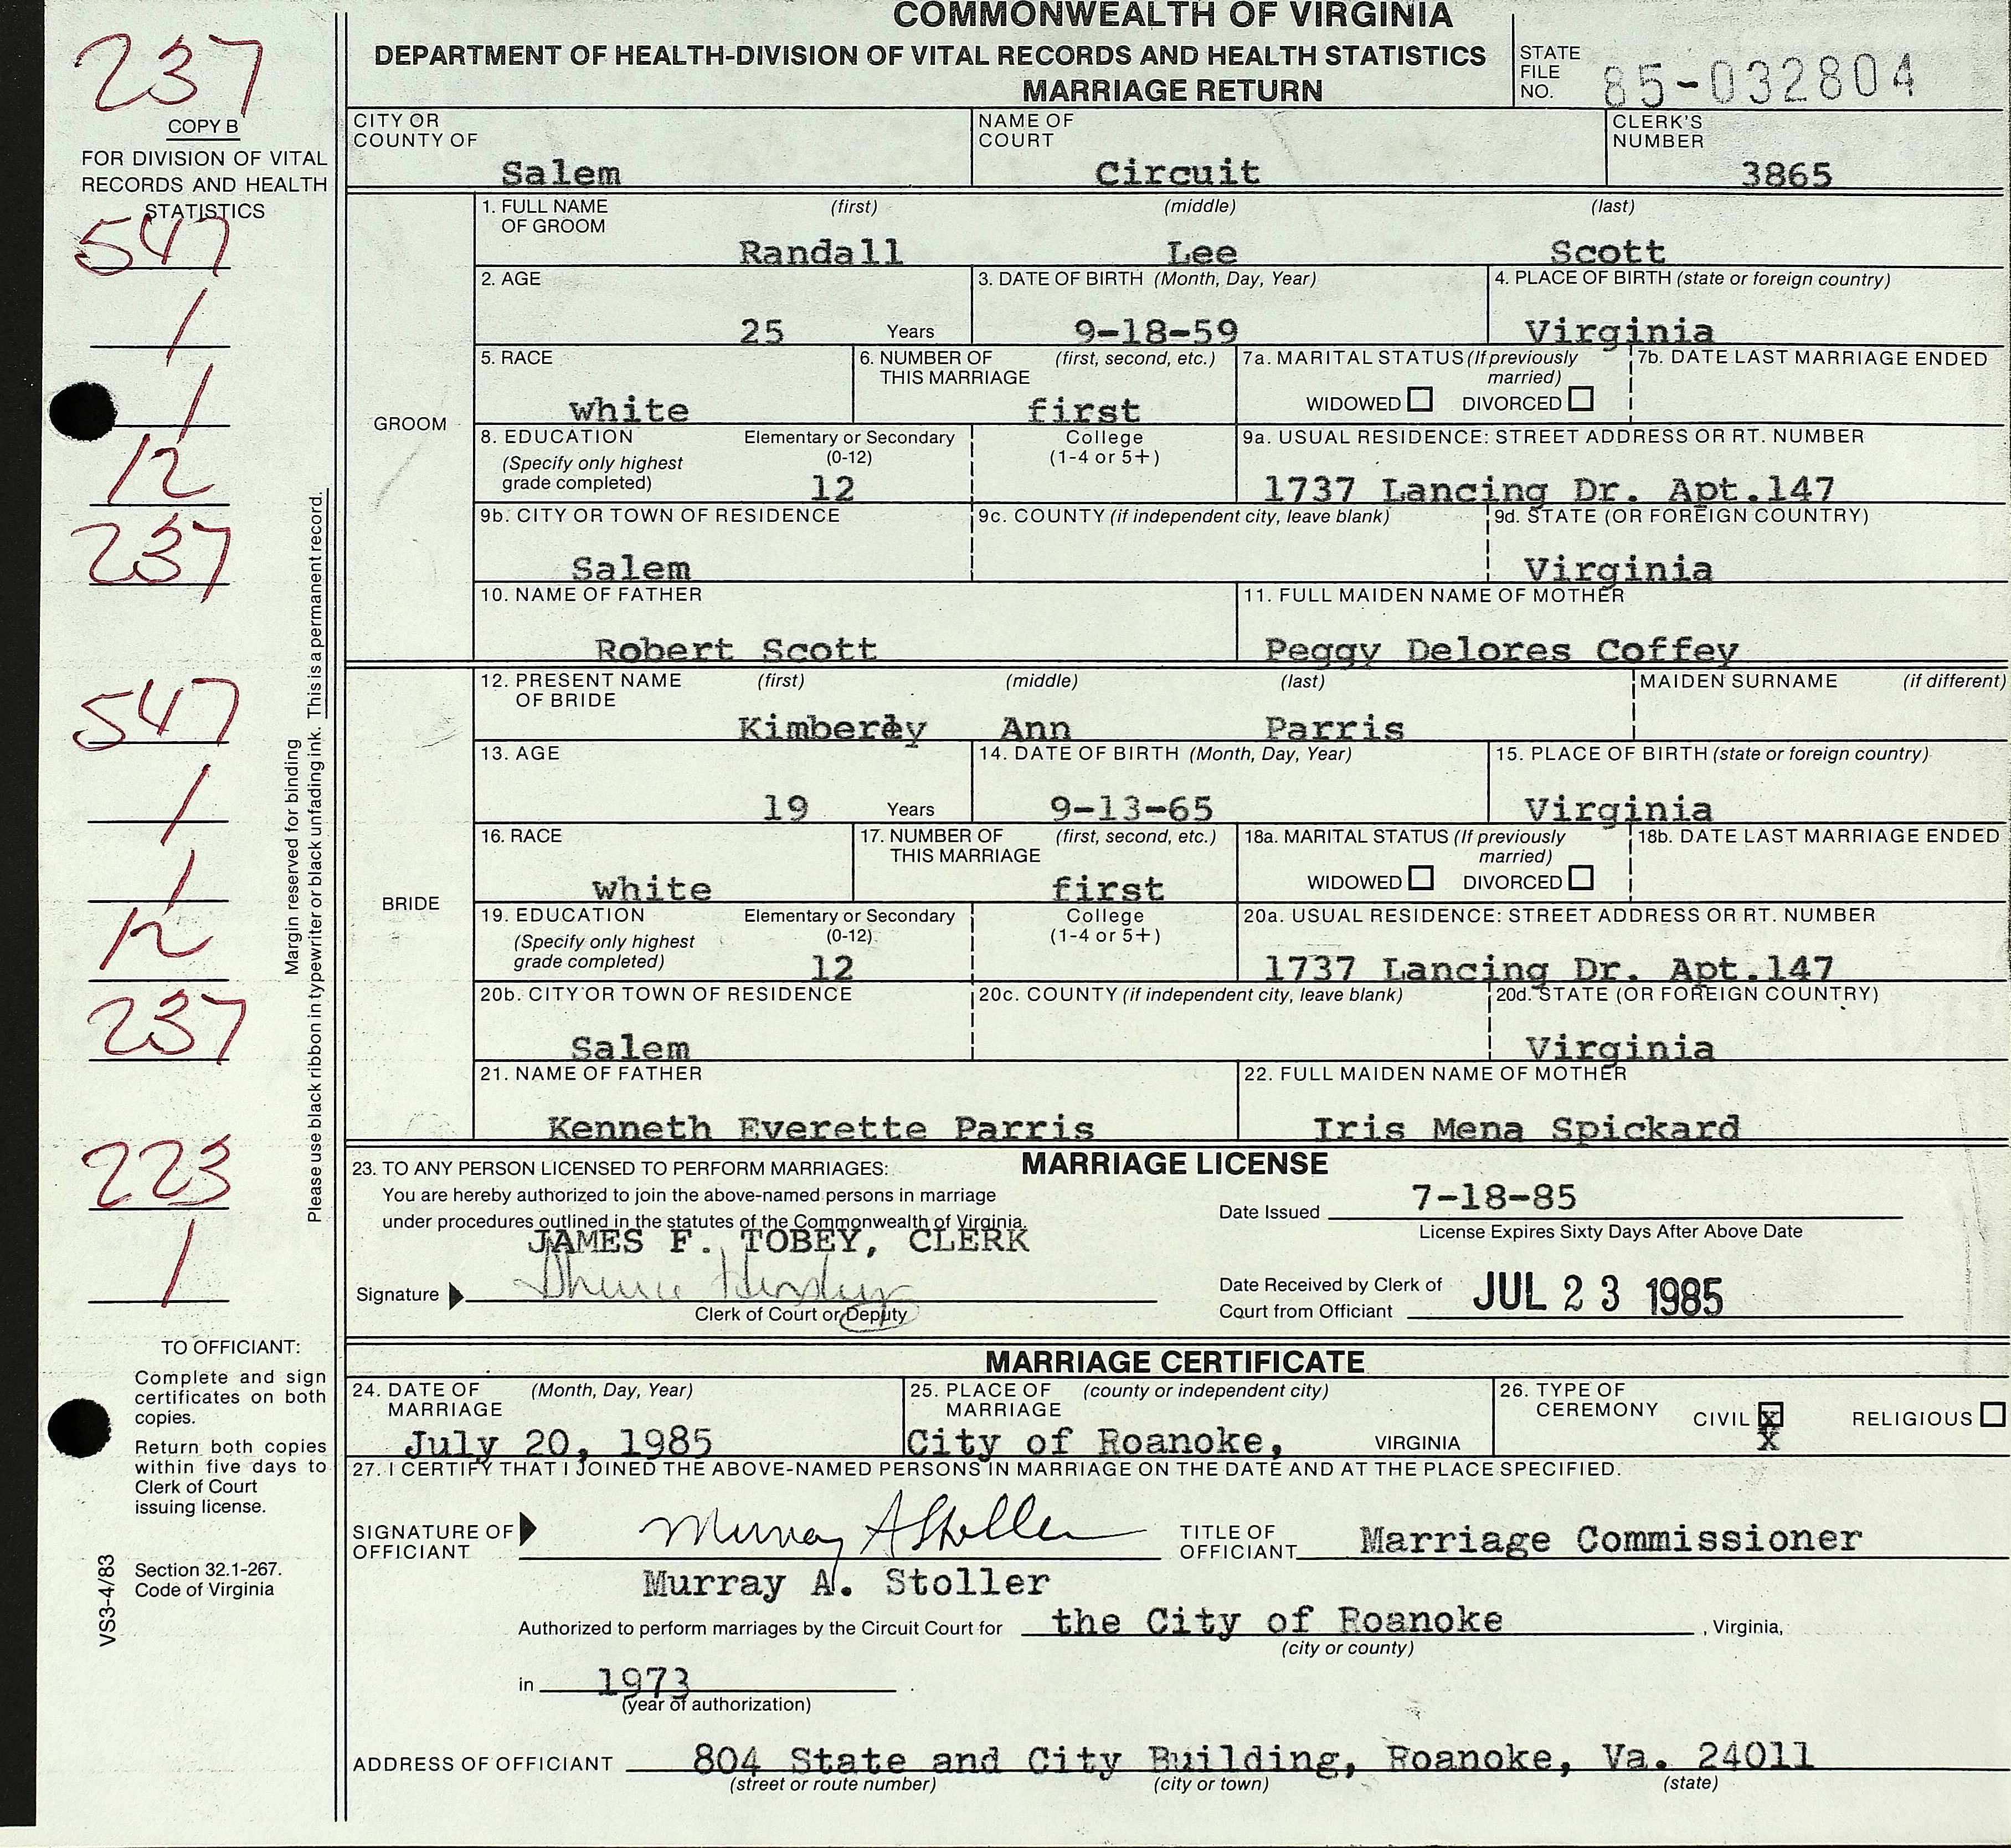 COMMONWEALTH OF VIRGINIA
DEPARTMENT OF HEALTH-DIVISION OF VITAL RECORDS AND HEALTH STATISTICS
MARRIAGE RETURN
STATE FILE NO. 85-032804
237
COPY B
FOR DIVISION OF VITAL
RECORDS AND HEALTH
STATISTICS
547
1
1
12
237
547
1
1
12
237
223
1
Margin reserved for binding
Please use black ribbon in typewriter or black unfading ink. This is a permanent record.
TO OFFICIANT:
Complete and sign
certificates on both
copies.
Return both copies
within five days to
Clerk of Court
issuing license.
Section 32.1-267.
Code of Virginia
VS3-4/83
CITY OR COUNTY OF Salem
NAME OF COURT Circuit
CLERK'S NUMBER 3865
GROOM
1. FULL NAME OF GROOM (first) (middle) (last)
Randall Lee Scott
2. AGE 25 Years
3. DATE OF BIRTH (Month, Day, Year) 9-18-59
4. PLACE OF BIRTH (state or foreign country) Virginia
5. RACE white
6. NUMBER OF THIS MARRIAGE (first, second, etc.) first
7a. MARITAL STATUS (If previously married) WIDOWED DIVORCED
7b. DATE LAST MARRIAGE ENDED
8. EDUCATION (Specify only highest grade completed) Elementary or Secondary (0-12) 12
College (1-4 or 5+)
9a. USUAL RESIDENCE: STREET ADDRESS OR RT. NUMBER
1737 Lancing Dr. Apt.147
9b. CITY OR TOWN OF RESIDENCE Salem
9c. COUNTY (if independent city, leave blank)
9d. STATE (OR FOREIGN COUNTRY) Virginia
10. NAME OF FATHER Robert Scott
11. FULL MAIDEN NAME OF MOTHER Peggy Delores Coffey
BRIDE
12. PRESENT NAME OF BRIDE (first) (middle) (last) MAIDEN SURNAME (if different)
Kimberly Ann Parris
13. AGE 19 Years
14. DATE OF BIRTH (Month, Day, Year) 9-13-65
15. PLACE OF BIRTH (state or foreign country) Virginia
16. RACE white
17. NUMBER OF THIS MARRIAGE (first, second, etc.) first
18a. MARITAL STATUS (If previously married) WIDOWED DIVORCED
18b. DATE LAST MARRIAGE ENDED
19. EDUCATION (Specify only highest grade completed) Elementary or Secondary (0-12) 12
College (1-4 or 5+)
20a. USUAL RESIDENCE: STREET ADDRESS OR RT. NUMBER
1737 Lancing Dr. Apt.147
20b. CITY OR TOWN OF RESIDENCE Salem
20c. COUNTY (if independent city, leave blank)
20d. STATE (OR FOREIGN COUNTRY) Virginia
21. NAME OF FATHER Kenneth Everette Parris
22. FULL MAIDEN NAME OF MOTHER Iris Mena Spickard
MARRIAGE LICENSE
23. TO ANY PERSON LICENSED TO PERFORM MARRIAGES:
You are hereby authorized to join the above-named persons in marriage
under procedures outlined in the statutes of the Commonwealth of Virginia.
JAMES F. TOBEY, CLERK
Signature
Clerk of Court or Deputy
Date Issued 7-18-85
License Expires Sixty Days After Above Date
Date Received by Clerk of
Court from Officiant JUL 23 1985
MARRIAGE CERTIFICATE
24. DATE OF MARRIAGE (Month, Day, Year) July 20, 1985
25. PLACE OF MARRIAGE (county or independent city) City of Roanoke, VIRGINIA
26. TYPE OF CEREMONY CIVIL X X RELIGIOUS
27. I CERTIFY THAT I JOINED THE ABOVE-NAMED PERSONS IN MARRIAGE ON THE DATE AND AT THE PLACE SPECIFIED.
SIGNATURE OF OFFICIANT Murray A Stoller
TITLE OF OFFICIANT Marriage Commissioner
Murray A. Stoller
Authorized to perform marriages by the Circuit Court for the City of Roanoke, Virginia,
(city or county)
in 1973.
(year of authorization)
ADDRESS OF OFFICIANT 804 State and City Building, Roanoke, Va. 24011
(street or route number) (city or town) (state)